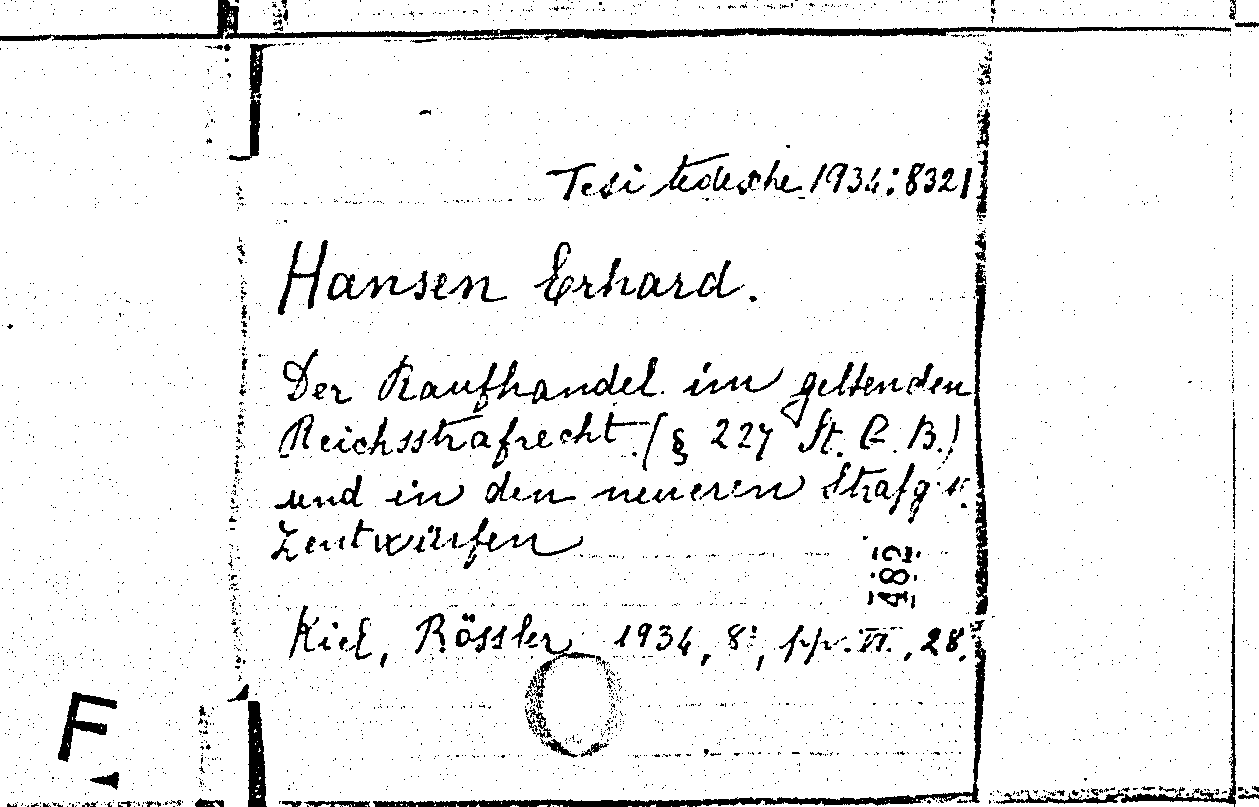 Tesi tedesche 1934:8321
Hansen Erhard.
Der Raufhandel im geltenden
Reichsstrafrecht (§ 227 St. G. B.)
und in den neueren Strafg
Zentwürfen
482
Kiel, Rössler 1934, 8°, pp. VI, 28.
F